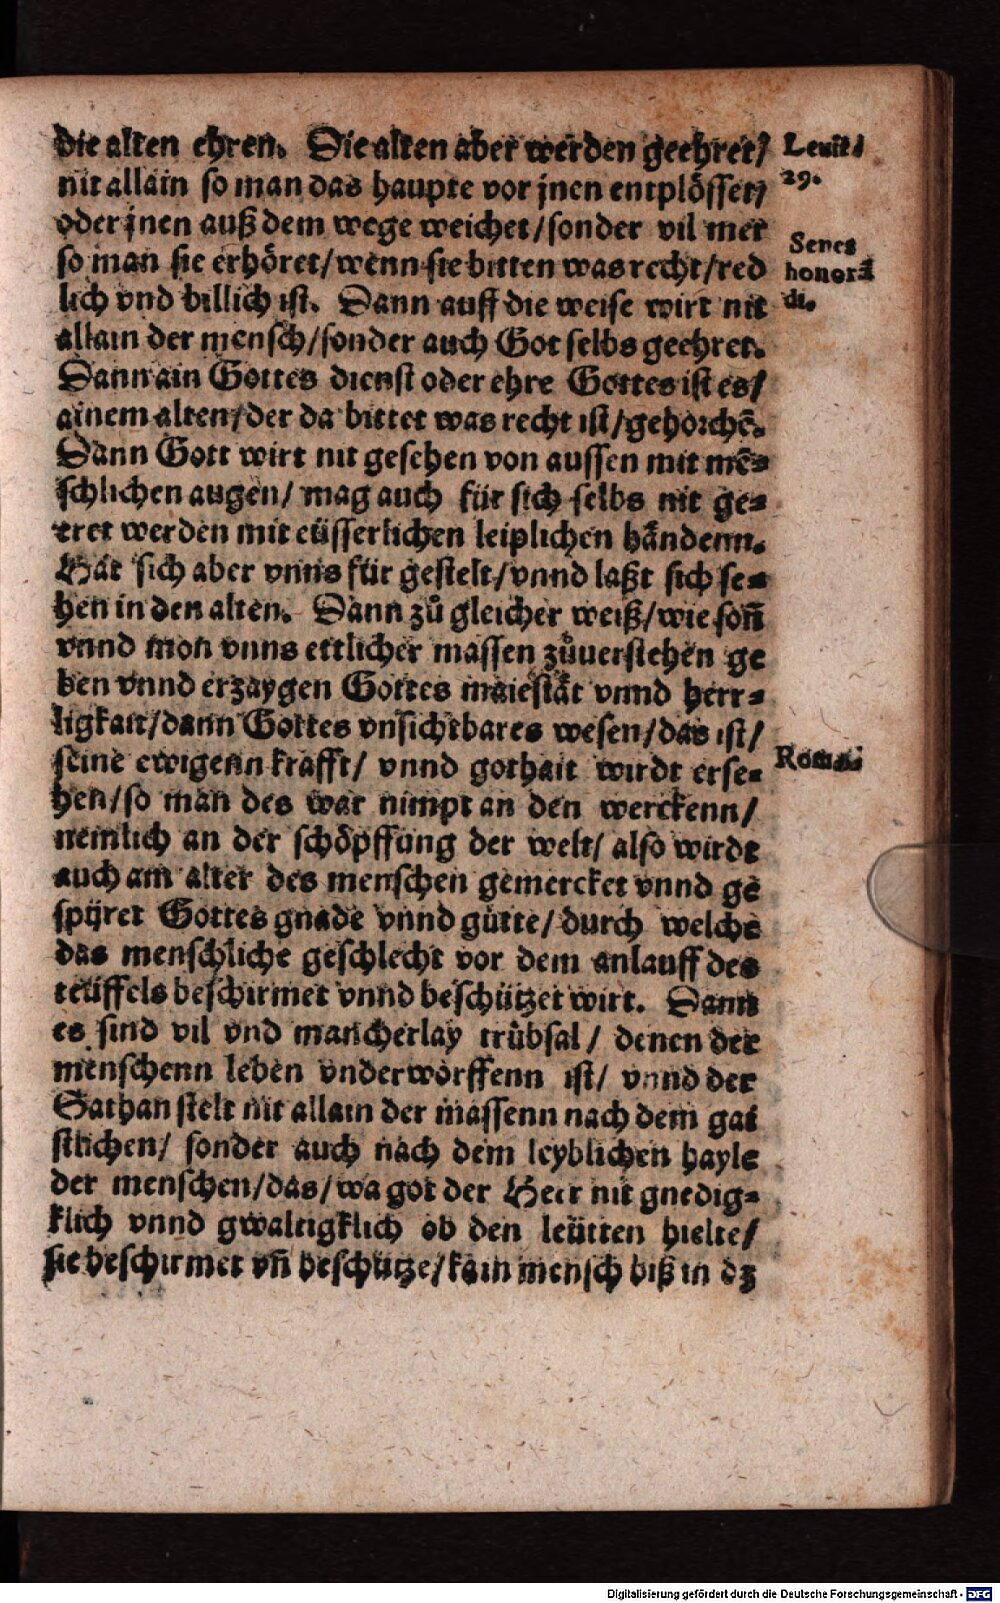 die alten ehren. Die alten aber werden geehret/
nit allain so man das haupte vor jnen entplösset/
oder jnen auß dem wege weichet/sonder vil mer
so man sie erhöret/wenn sie bitten was recht/red
lich vnd billich ist. Dann auff die weise wirt nit
allain der mensch/sonder auch Got selbs geehret.
Dann ain Gottes dienst oder ehre Gottes ist es/
ainem alten/der da bittet was recht ist/gehorchẽ.
Dann Gott wirt nit gesehen von aussen mit mẽ-
schlichen augen/ mag auch für sich selbs nit ge-
eret werden mit eüsserlichen leiplichen händenn.
Hat sich aber vnns für gestelt/vnnd laßt sich se-
hen in den alten. Dann zů gleicher weiß/wie soñ
vnnd mon vnns ettlicher massen zůuerstehen ge
ben vnnd erzaygen Gottes maiestät vnnd herr-
ligkait/dann Gottes vnsichtbares wesen/das ist/
seine ewigenn krafft/ vnnd gothait wirdt erse-
hen/so man des war nimpt an den werckenn/
nemlich an der schöpffung der welt/ also wirdt
auch am alter des menschen gemercket vnnd ge
spüret Gottes gnade vnnd gütte/durch welche
das menschliche geschlecht vor dem anlauff des
teüffels beschirmet vnnd beschützet wirt. Dann
es sind vil vnd mancherlay trübsal/ denen der
menschenn leben vnderworffenn ist/ vnnd der
Sathan stelt nit allain der massenn nach dem gai
stlichen/ sonder auch nach dem leyblichen hayle
der menschen/das/wa got der Herr nit gnedig-
klich vnnd gwaltigklich ob den leütten hielte/
sie beschirmet vñ beschütze/kain mensch biß in dz
Leuit.
29.
Senes
honorā
di.
Roma.
Digitalisierung gefördert durch die Deutsche Forschungsgemeinschaft - DFG